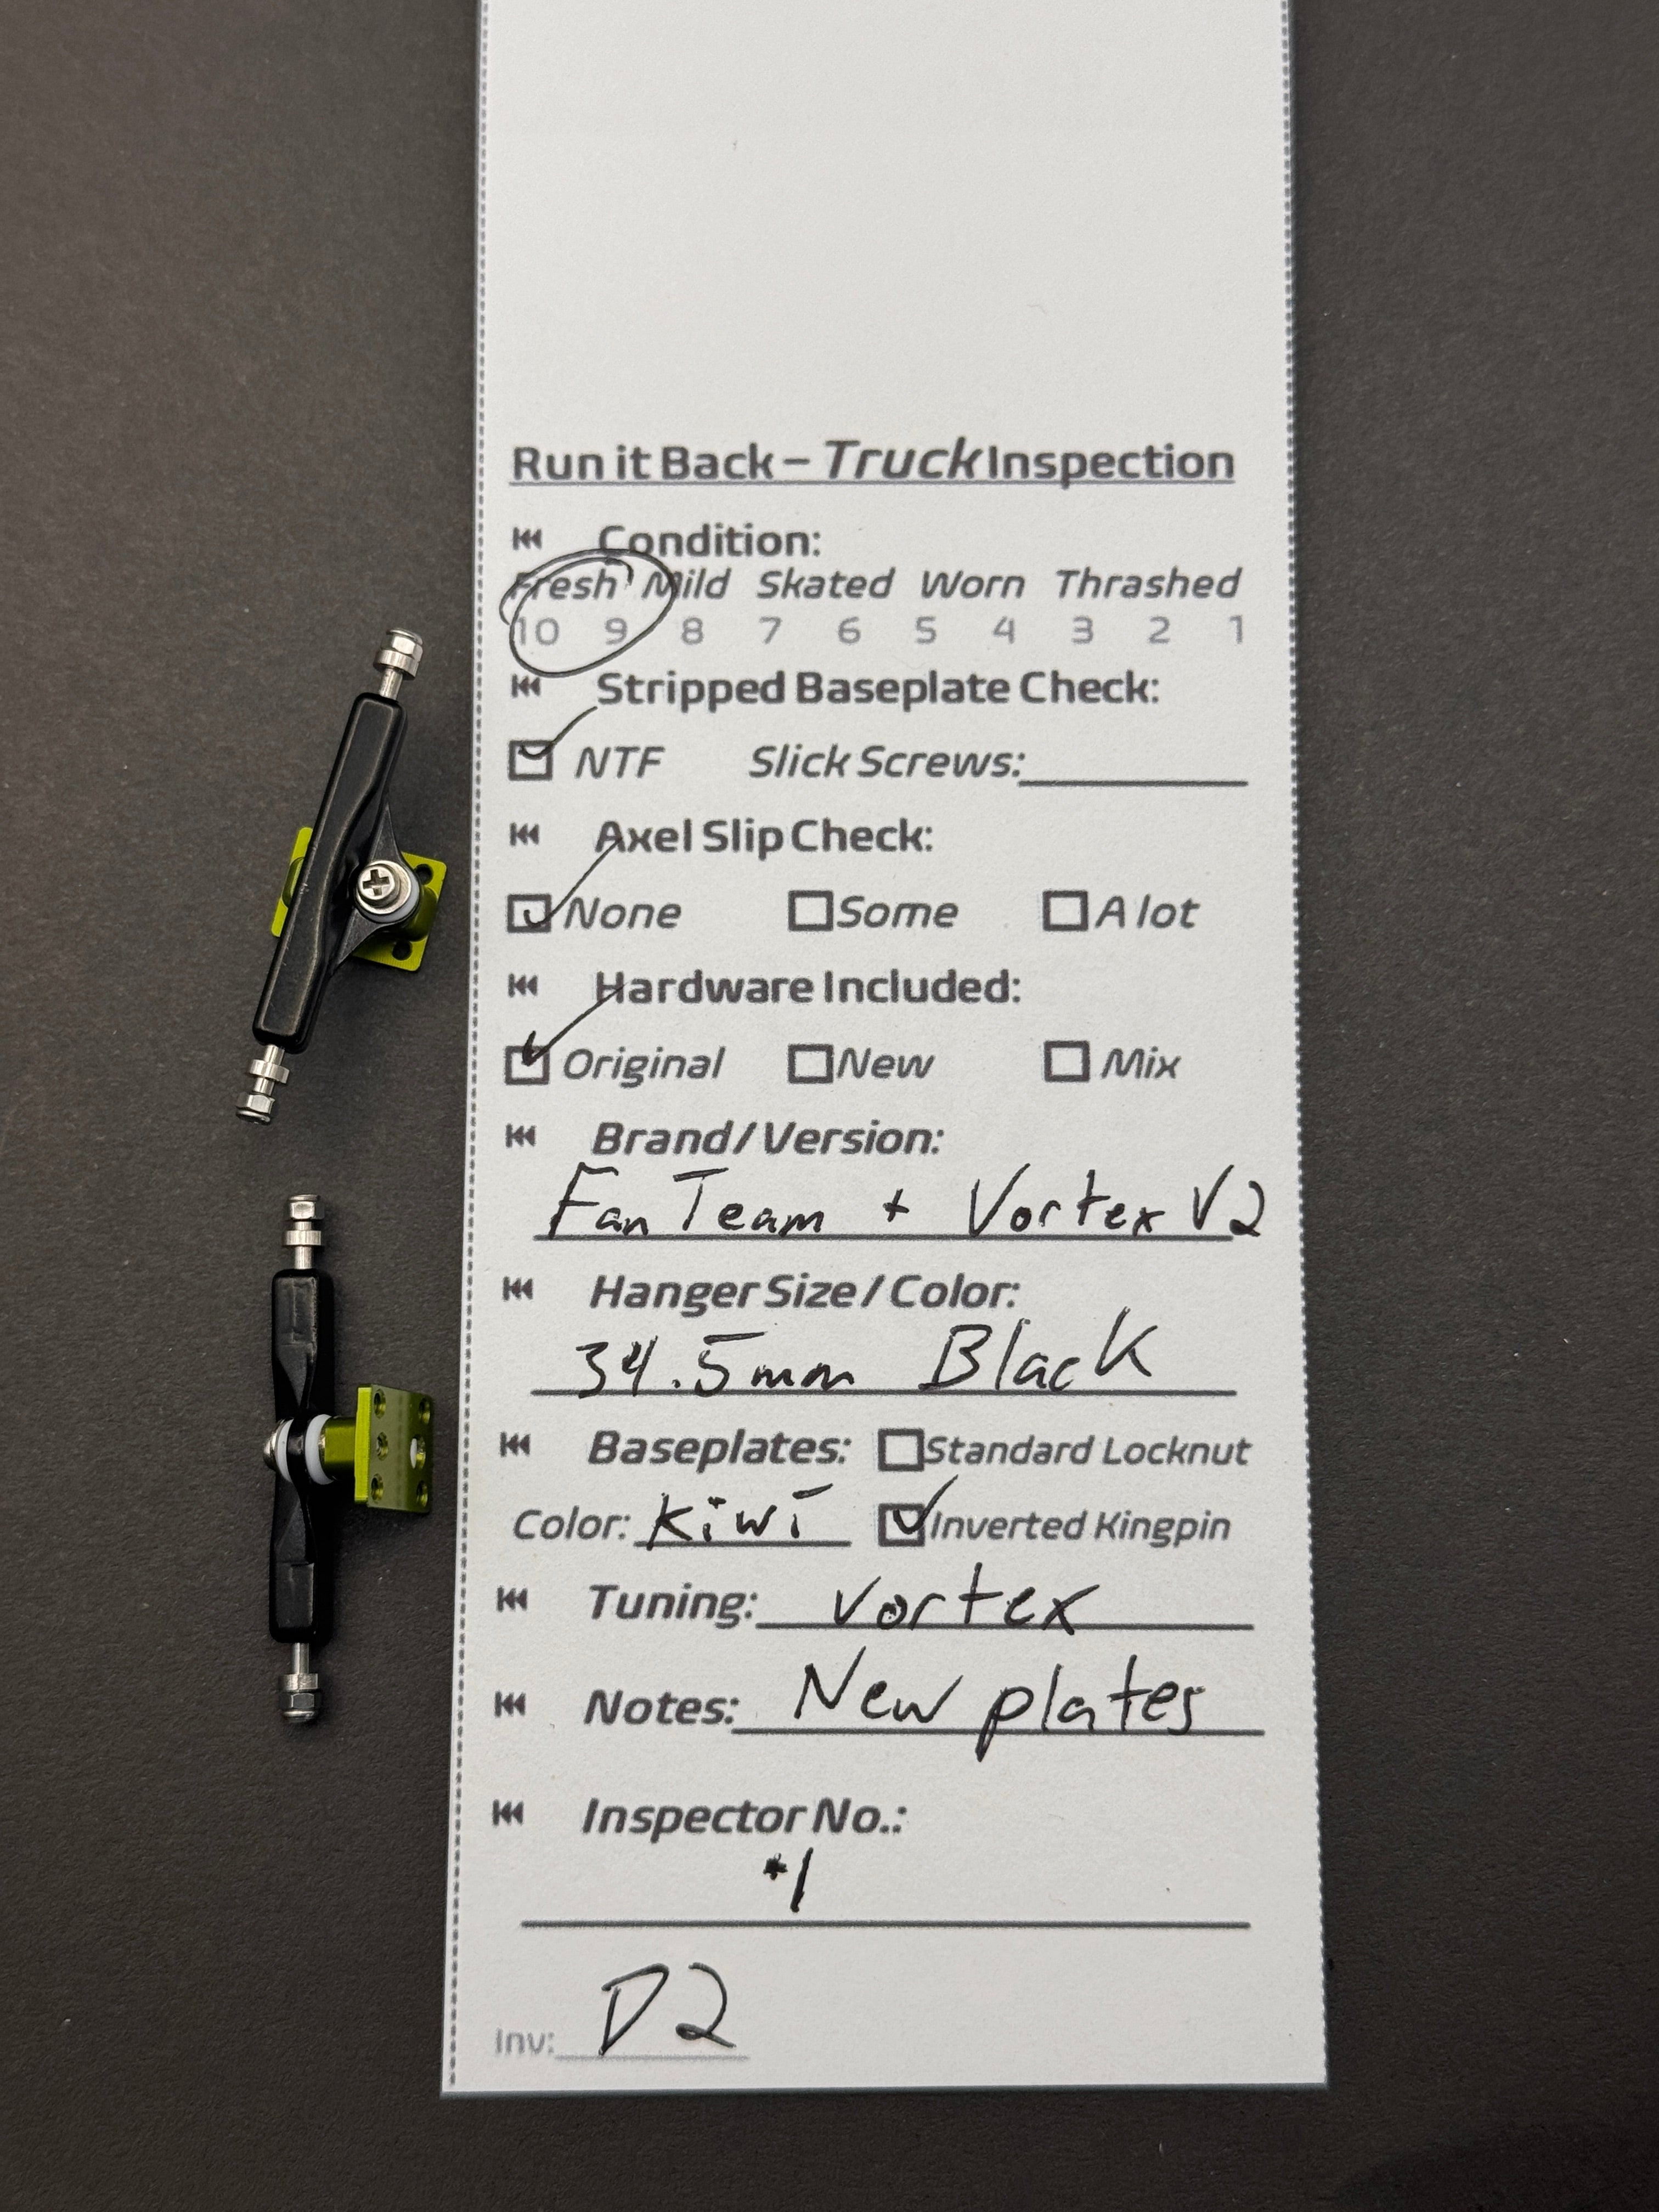 Run it Back – Truck Inspection
Condition:
Fresh Mild Skated Worn Thrashed
10 9 8 7 6 5 4 3 2 1
Stripped Baseplate Check:
NTF Slick Screws:
Axel Slip Check:
None Some A lot
Hardware Included:
Original New Mix
Brand/Version:
Fan Team + Vortex V2
Hanger Size / Color:
34.5mm Black
Baseplates: Standard Locknut
Color: Kiwi Inverted Kingpin
Tuning: Vortex
Notes: New plates
Inspector No.:
#1
Inv: D2